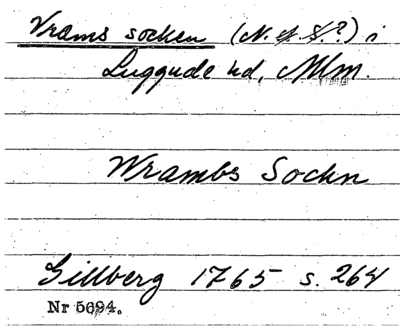 Vrams socken (N. o. S.?) i
Luggude hd, Mlm.
Wrambs Sockn
Gillberg 1765 s. 264
Nr 5694.